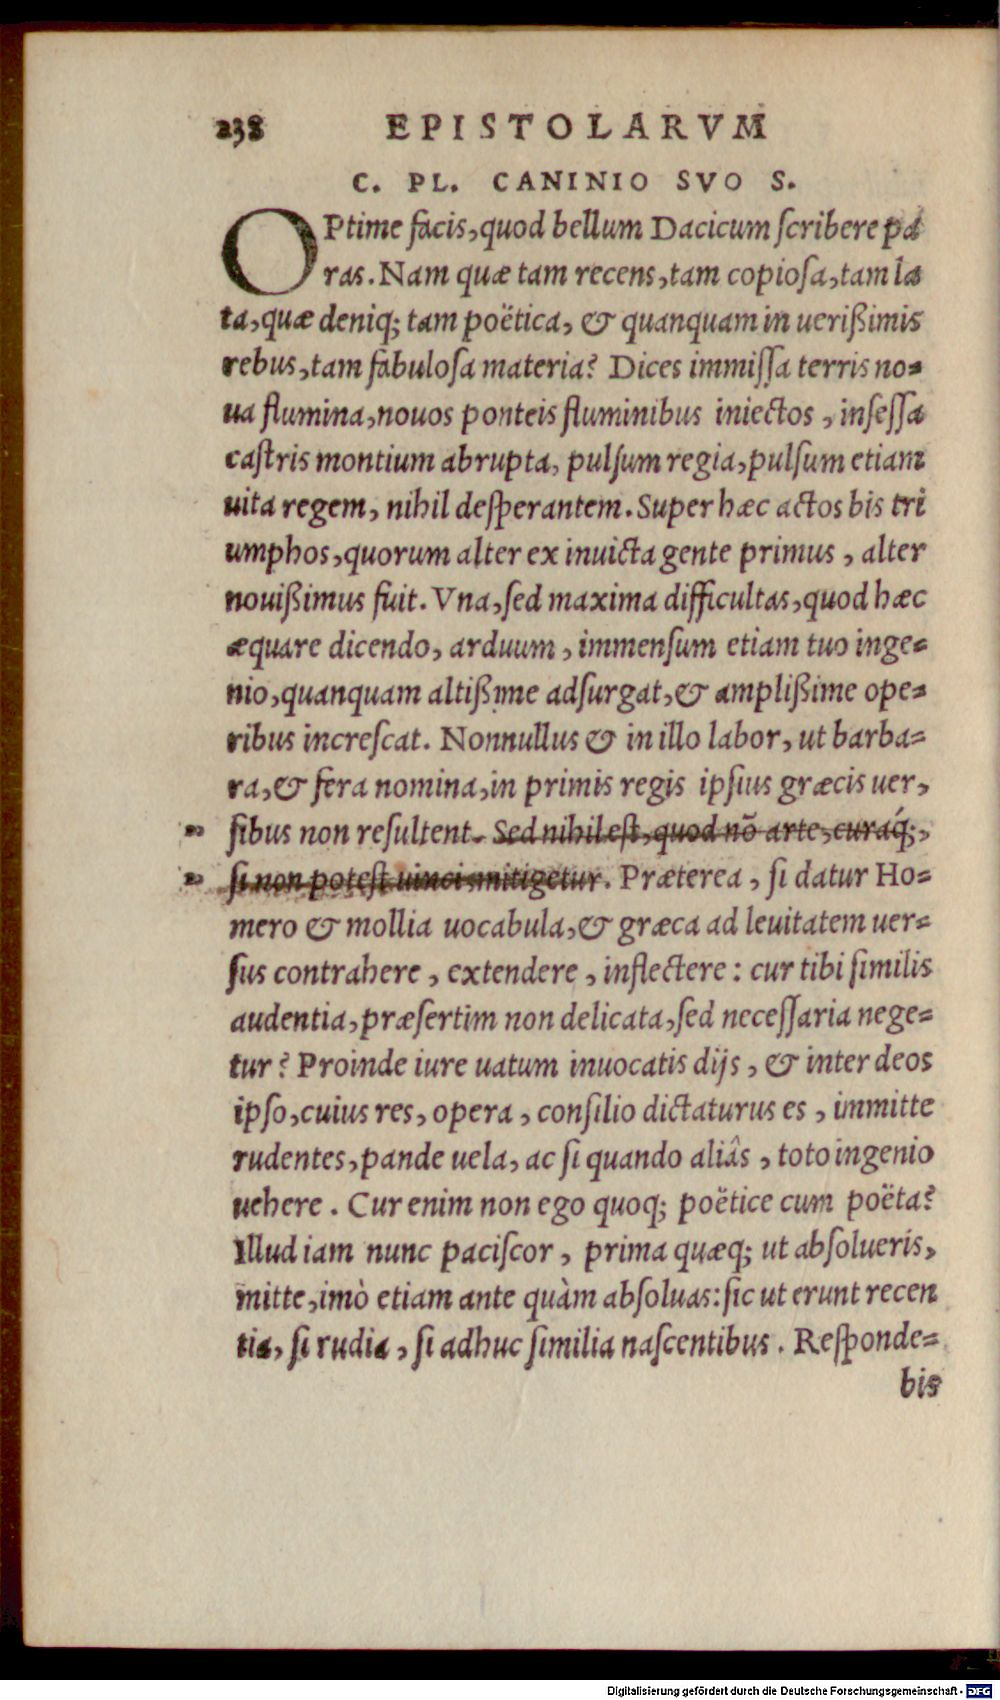 238 EPISTOLARVM
C. PL. CANINIO SVO S.
OPtime facis, quod bellum Dacicum ſcribere pa
ras. Nam quæ tam recens, tam copioſa, tam la
ta, quæ deniq; tam poëtica, & quanquam in uerißimis
rebus, tam fabuloſa materia? Dices immiſſa terris no=
ua flumina, nouos ponteis fluminibus iniectos, inſeſſa
caſtris montium abrupta, pulſum regia, pulſum etiam
uita regem, nihil deſperantem. Super hæc actos bis tri
umphos, quorum alter ex inuicta gente primus, alter
nouißimus fuit. Vna, ſed maxima difficultas, quod hæc
æquare dicendo, arduum, immenſum etiam tuo inge=
nio, quanquam altißime adſurgat, & amplißime ope=
ribus increſcat. Nonnullus & in illo labor, ut barba=
ra, & fera nomina, in primis regis ipſius græcis uer,
ſibus non reſultent. Sed nihil eſt, quod nõ arte, curaq́;,
ſi non poteſt uinci mitigetur. Præterea, ſi datur Ho=
mero & mollia uocabula, & græca ad leuitatem uer=
ſus contrahere, extendere, inflectere: cur tibi ſimilis
audentia, præſertim non delicata, ſed neceſſaria nege=
tur? Proinde iure uatum inuocatis dijs, & inter deos
ipſo, cuius res, opera, conſilio dictaturus es, immitte
rudentes, pande uela, ac ſi quando aliâs, toto ingenio
uehere. Cur enim non ego quoq; poëtice cum poëta?
Illud iam nunc paciſcor, prima quæq; ut abſolueris,
mitte, imò etiam ante quàm abſoluas: ſic ut erunt recen
tia, ſi rudia, ſi adhuc ſimilia naſcentibus. Reſponde=
bis
Digitalisierung gefördert durch die Deutsche Forschungsgemeinschaft - DFG